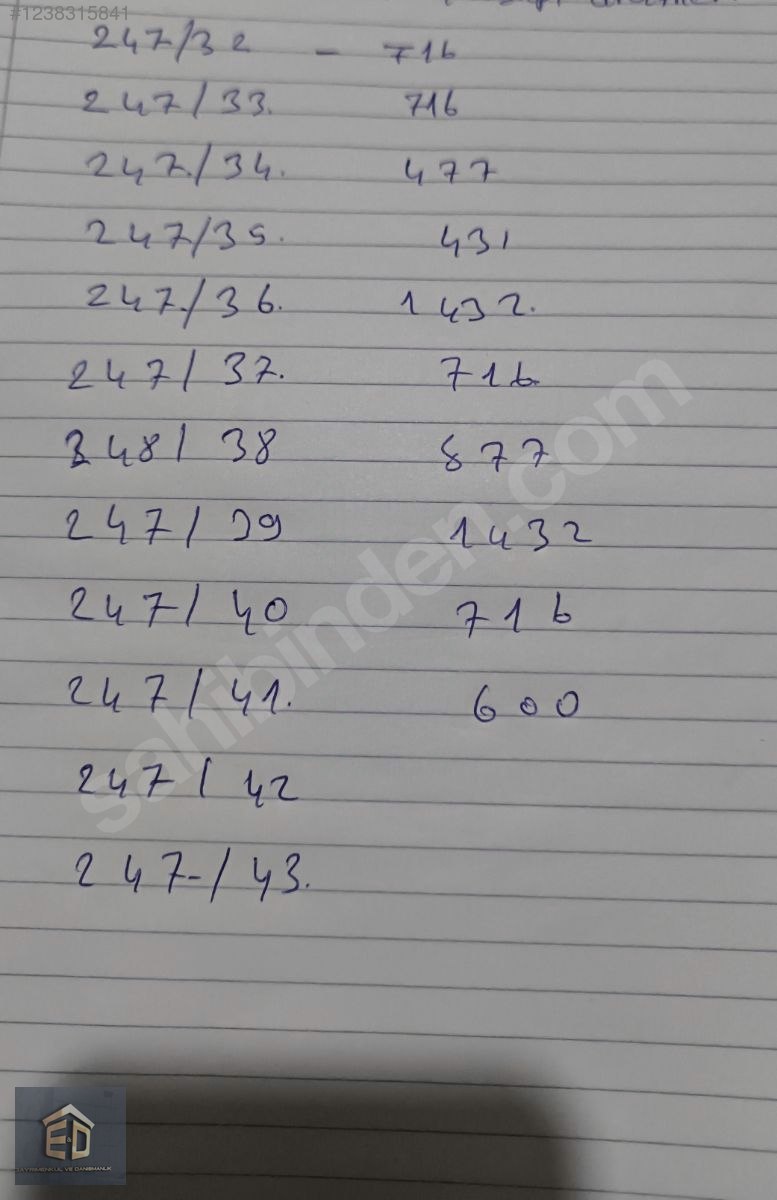 #1238315841
247/32 - 716
247/33. 716
247/34. 477
247/35. 431
247/36. 1432.
247/37. 716
348/38 877
247/39 1432
247/40 716
247/41. 600
247/42
247-/43.
sahibinden.com
E&D
GAYRİMENKUL VE DANIŞMANLIK